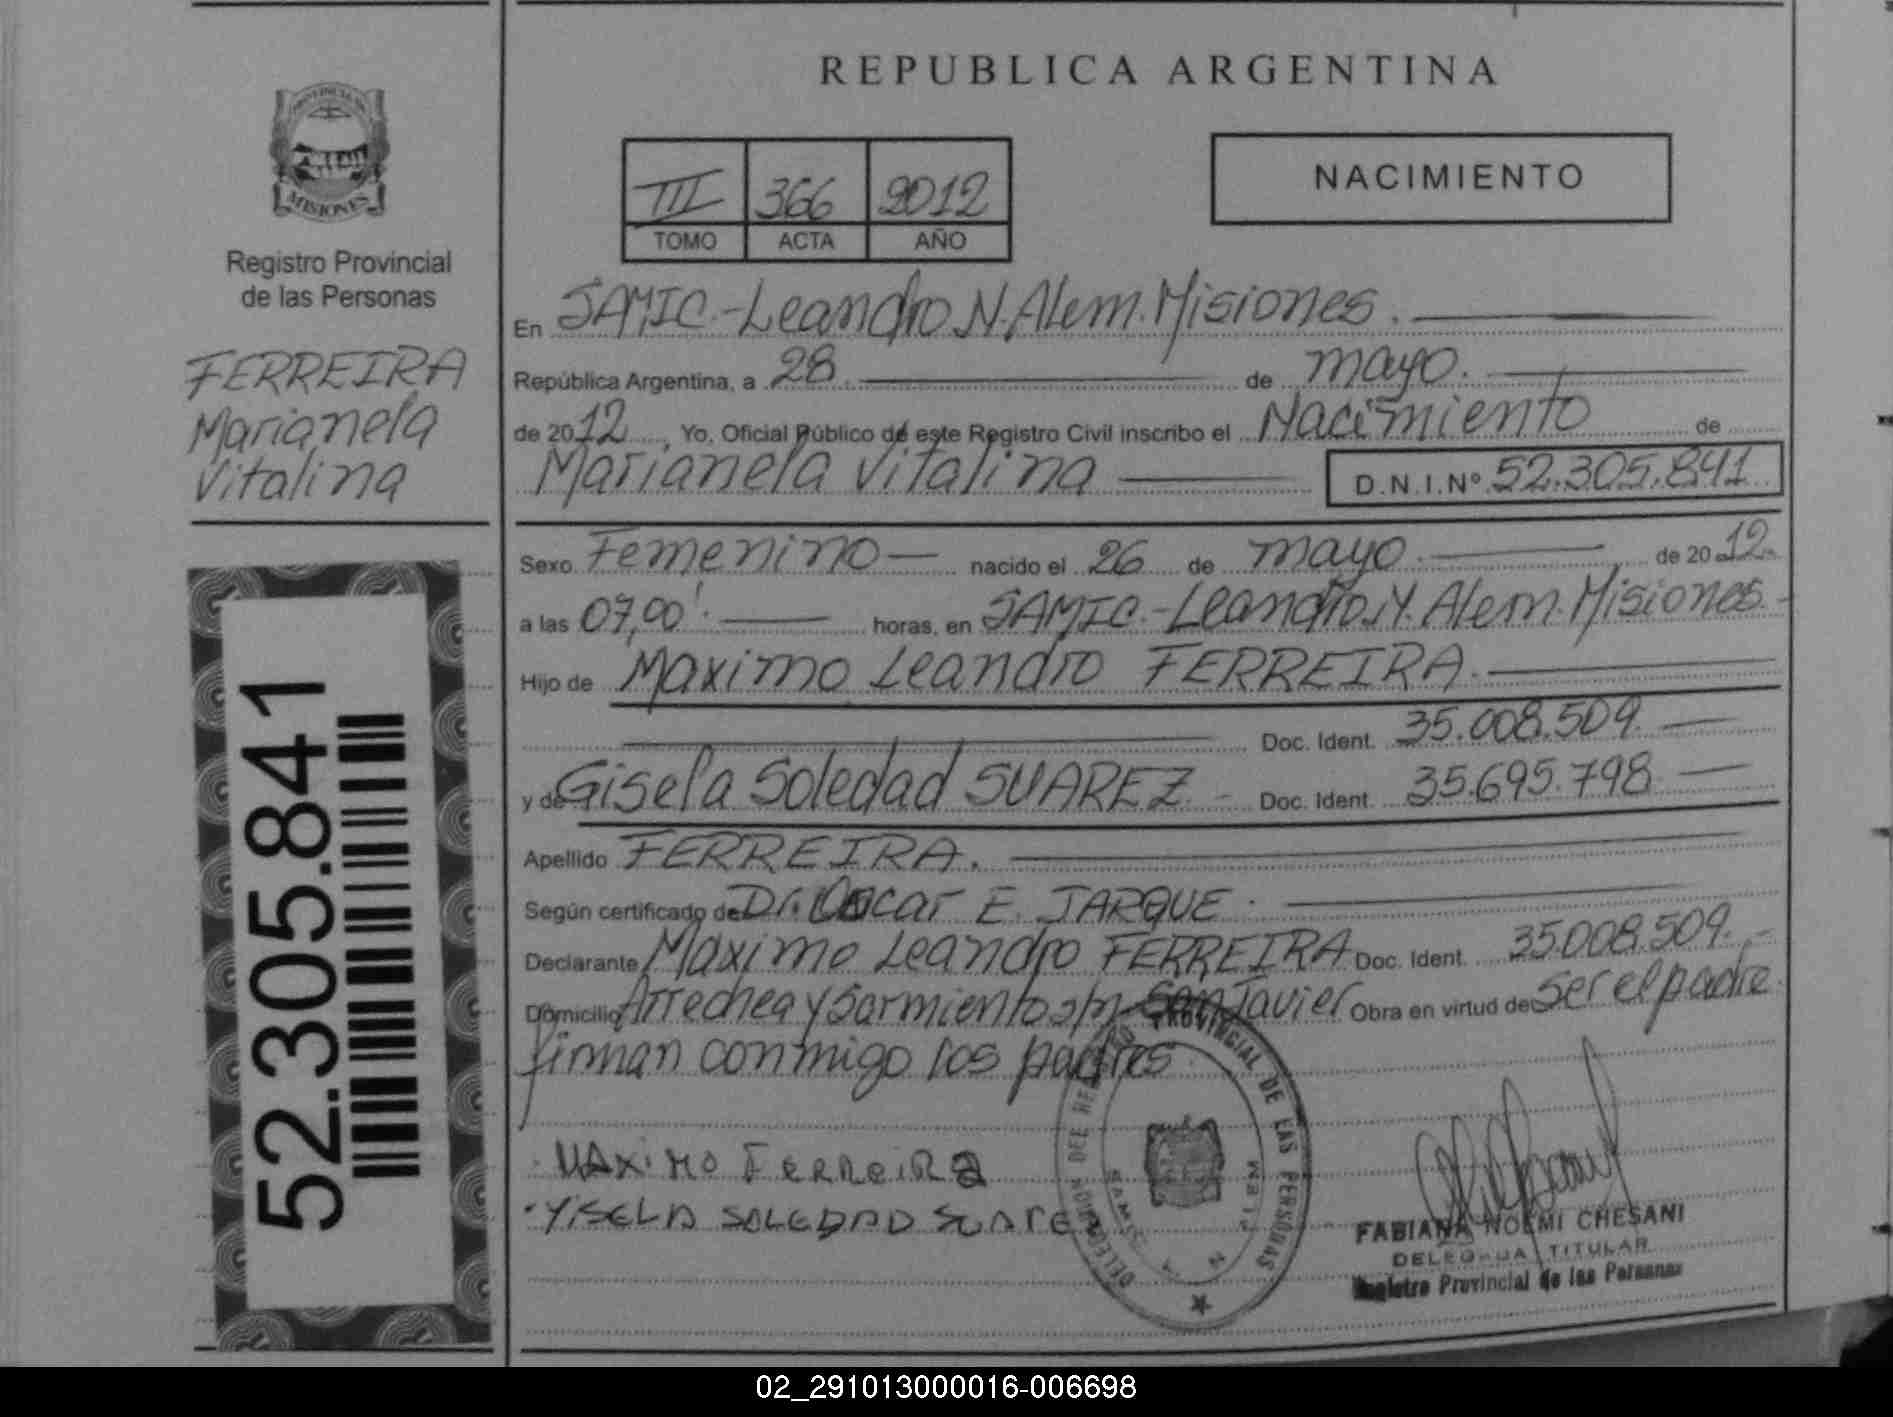 REPUBLICA ARGENTINA
PROVINCIA DE
MISIONES
Registro Provincial
de las Personas
FERREIRA
Marianela
Vitalina
52.305.841
III 366 2012
TOMO ACTA AÑO
NACIMIENTO
En SAMIC.-Leandro N. Alem. Misiones.
República Argentina, a 28. de mayo.
de 2012, Yo, Oficial Público de este Registro Civil inscribo el Nacimiento de
Marianela Vitalina D.N.I.Nº 52.305.841
Sexo Femenino nacido el 26 de mayo. de 2012.
a las 07,00'. horas, en SAMIC.-Leandro.N. Alem. Misiones.-
Hijo de Maximo Leandro FERREIRA.
Doc. Ident. 35.008.509.
y de Gisela Soledad SUAREZ.- Doc. Ident. 35.695.798
Apellido FERREIRA.
Según certificado de Dr. Oscar E. JARQUE.
Declarante Maximo Leandro FERREIRA Doc. Ident. 35.008.509.-
Domicilio Arrechea y Sarmiento s/n San Javier Obra en virtud de ser el padre.
firman conmigo los padres.
MAXIMO FERREIRA
YISELA SOLEDAD SUARE
DELEGACION DEL REGISTRO PROVINCIAL DE LAS PERSONAS
FABIANA NOEMI CHESANI
DELEGADA TITULAR
Registro Provincial de las Personas
02_291013000016-006698